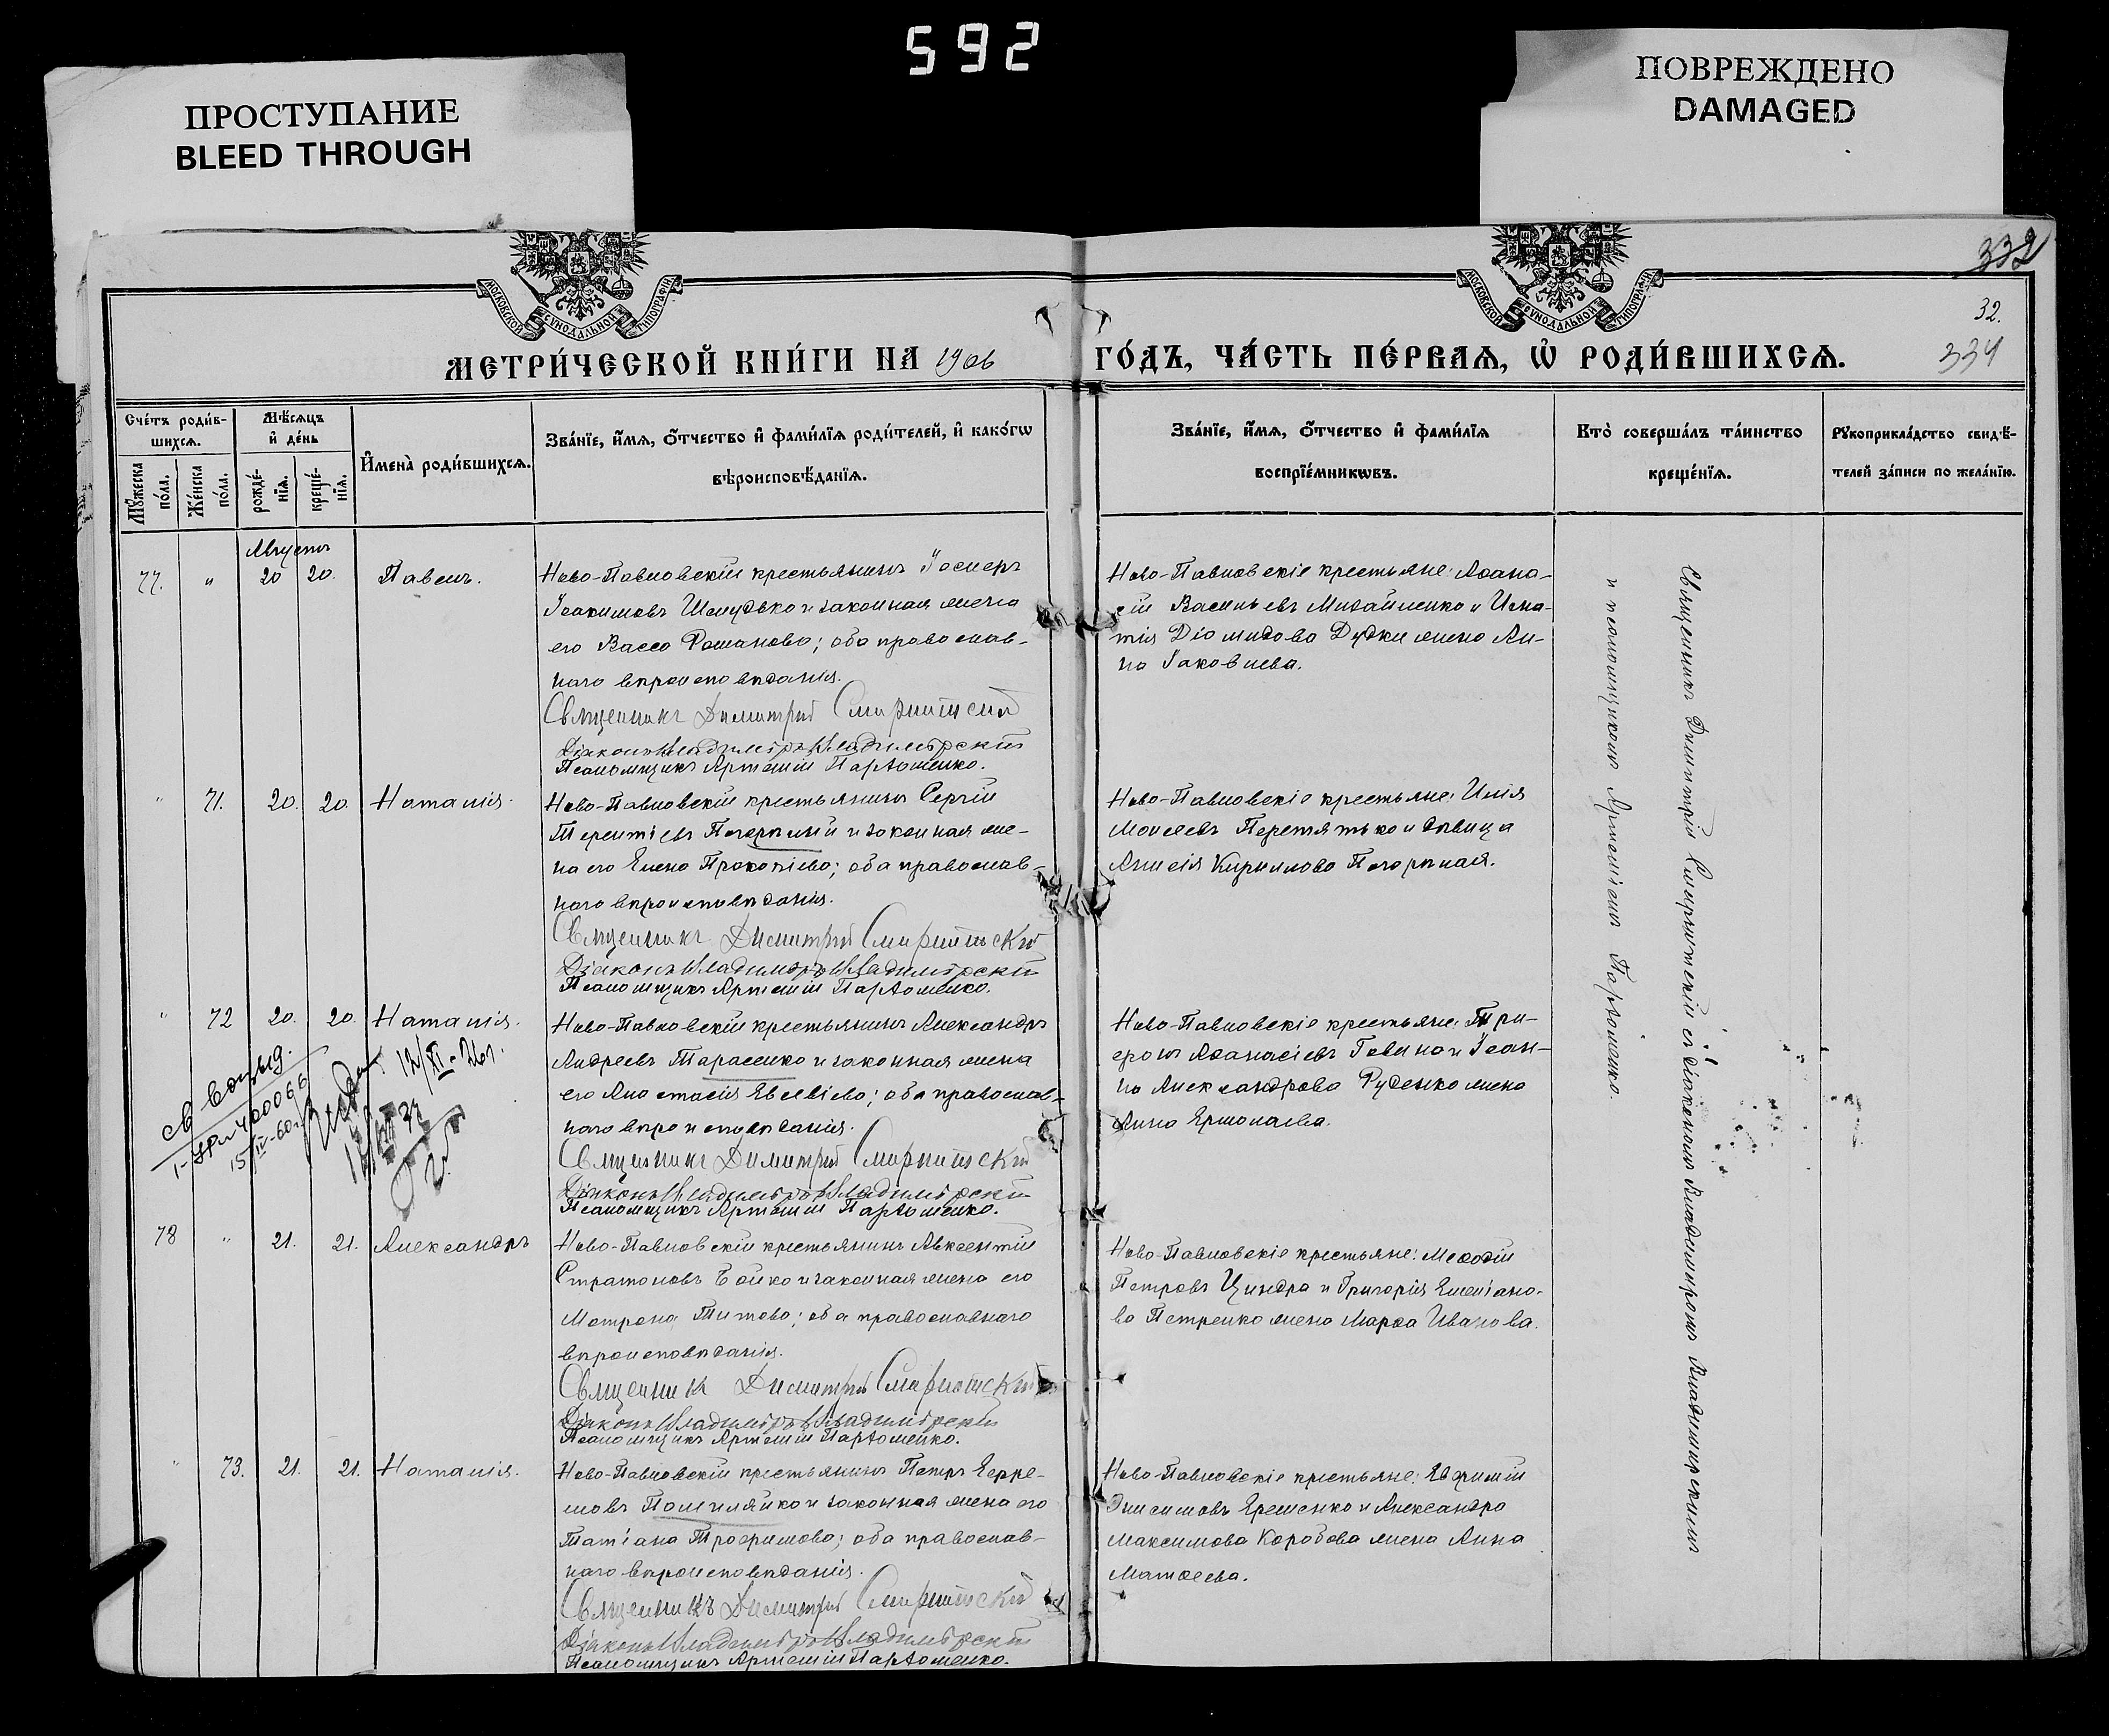 592
ПРОСТУПАНИЕ
BLEED THROUGH
ПОВРЕЖДЕНО
DAMAGED
МОСКОВСКОЙ СѴНОДАЛЬНОЙ ТИПОГРАФІИ
МОСКОВСКОЙ СѴНОДАЛЬНОЙ ТИПОГРАФІИ
332
32.
334
МЕТРИ́ЧЕСКОЙ КНИ́ГИ НА 1906 ГО́ДЪ, ЧА́СТЬ ПЕ́РВАѦ, Ѡ҆ РОДИ́ВШИХСѦ.
Сче́тъ роди́в-
шихсѧ.
Мѣ́сѧцъ
и҆ де́нь
Мꙋ́жеска по́ла.
Же́нска по́ла.
рожде́-нїѧ.
креще́-нїѧ.
И҆мена̀ роди́вшихсѧ.
Зва́нїе, и҆́мѧ, ѻ҆́тчество и҆ фами́лїѧ роди́телей, и҆ како́гѡ
вѣроисповѣ́данїѧ.
Зва́нїе, и҆́мѧ, ѻ҆́тчество и҆ фами́лїѧ
воспрїе́мникѡвъ.
Кто̀ соверша́лъ та́инство
креще́нїѧ.
Рꙋкоприкла́дство свидѣ́-
телей за́писи по жела́нїю.
Августъ
77. " 20 20. Павелъ.
Ново-Павловскій крестьянинъ Іосифъ
Іоакимовъ Шмудько и законная жена
его Васса Романова; оба православ-
наго вѣроисповѣданія.
Священникъ Димитрій Смирнитскій
Діаконъ Владиміръ Владимірскій
Псаломщикъ Артемій Парѳоменко.
Ново-Павловскіе крестьяне: Аѳана-
сій Васильевъ Михайленко и Игна-
тія Діомидова Дудки жена Ан-
на Іаковлева.
" 71. 20. 20. Наталія.
Ново-Павловскій крестьянинъ Сергій
Терентіевъ Погорѣлый и законная же-
на его Елена Прокопіева; оба православ-
наго вѣроисповѣданія.
Священникъ Димитрій Смирнитскій
Діаконъ Владиміръ Владимірскій
Псаломщикъ Артемій Парѳоменко.
Ново-Павловскіе крестьяне: Илія
Моисеевъ Перетятько и дѣвица
Кириллова Погорѣлая.
" 72 20. 20. Наталія.
Ново-Павловскій крестьянинъ Александръ
Андреевъ Тарасенко и законная жена
его Анастасія Евсевіева; оба православ-
наго вѣроисповѣданія.
Священникъ Димитрій Смирнитскій
Діаконъ Владиміръ Владимірскій
Псаломщикъ Артемій Парѳоменко.
Ново-Павловскіе крестьяне: Три-
фонъ Аѳанасіевъ Говина и Іоан-
на Александрова Руденко жена
Анна Ермолаева.
12/XI-26г.
15/IV-60г.
78 " 21. 21. Александръ
Ново-Павловскій крестьянинъ Авксентій
Стратоновъ Бойко и законная жена его
Матрона Титова; оба православнаго
вѣроисповѣданія.
Священникъ Димитрій Смирнитскій
Діаконъ Владиміръ Владимірскій
Псаломщикъ Артемій Парѳоменко.
Ново-Павловскіе крестьяне: Меѳодій
Петровъ Циндра и Григорія Емеліано-
ва Петренко жена Марѳа Иванова.
" 73. 21. 21. Наталія.
Ново-Павловскій крестьянинъ Петръ Ефре-
мовъ Помиляйко и законная жена его
Татіана Трофимова; оба православ-
наго вѣроисповѣданія.
Священникъ Димитрій Смирнитскій
Діаконъ Владиміръ Владимірскій
Псаломщикъ Артемій Парѳоменко.
Ново-Павловскіе крестьяне: Евфимій
Онисимовъ Еременко и Александра
Максимова Коробова жена Анна
Матѳеева.
Священникъ Димитрій Смирнитскій съ діакономъ Владиміромъ Владимірскимъ
и псаломщикомъ Артеміемъ Парѳоменко.